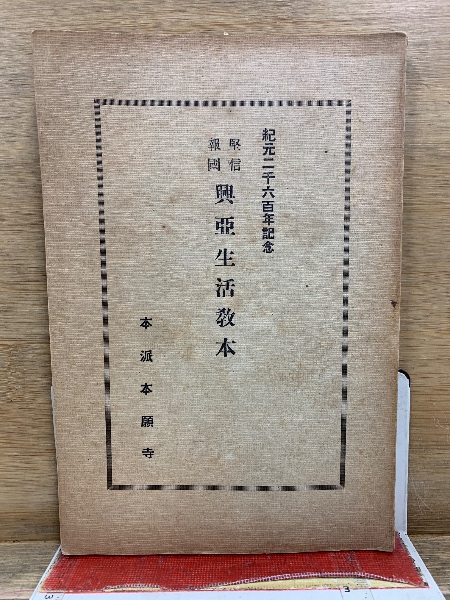 紀元二千六百年記念
堅信
報國
興亜生活教本
本派本願寺
3